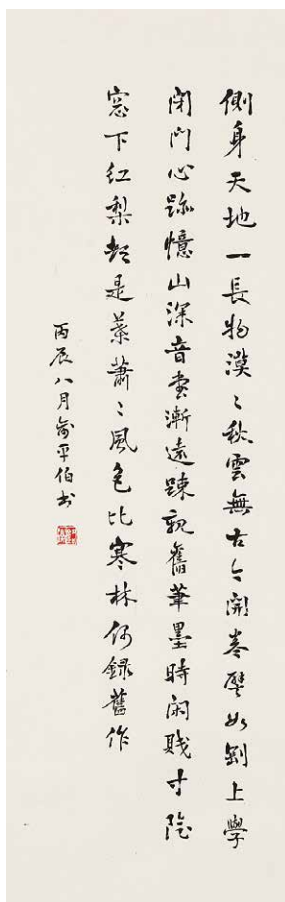 側身天地一長物漠〻秋雲無古今開卷譬如上學
閉門心跡憶山深音書漸遠踈親舊筆墨時閑賤寸陰
窓下紅梨都是葉蕭〻風色比寒林録舊作
丙辰八月俞平伯书